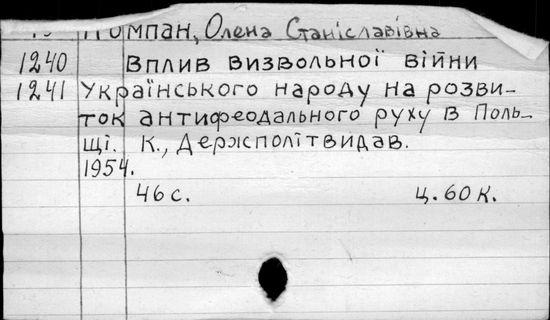 Компан, Олена Станіславівна
1240 Вплив визвольної війни
1241 Українського народу на розви-
ток антифеодального руху в Поль-
щі. К., Держполітвидав.
1954.
46 с. ц. 60 к.